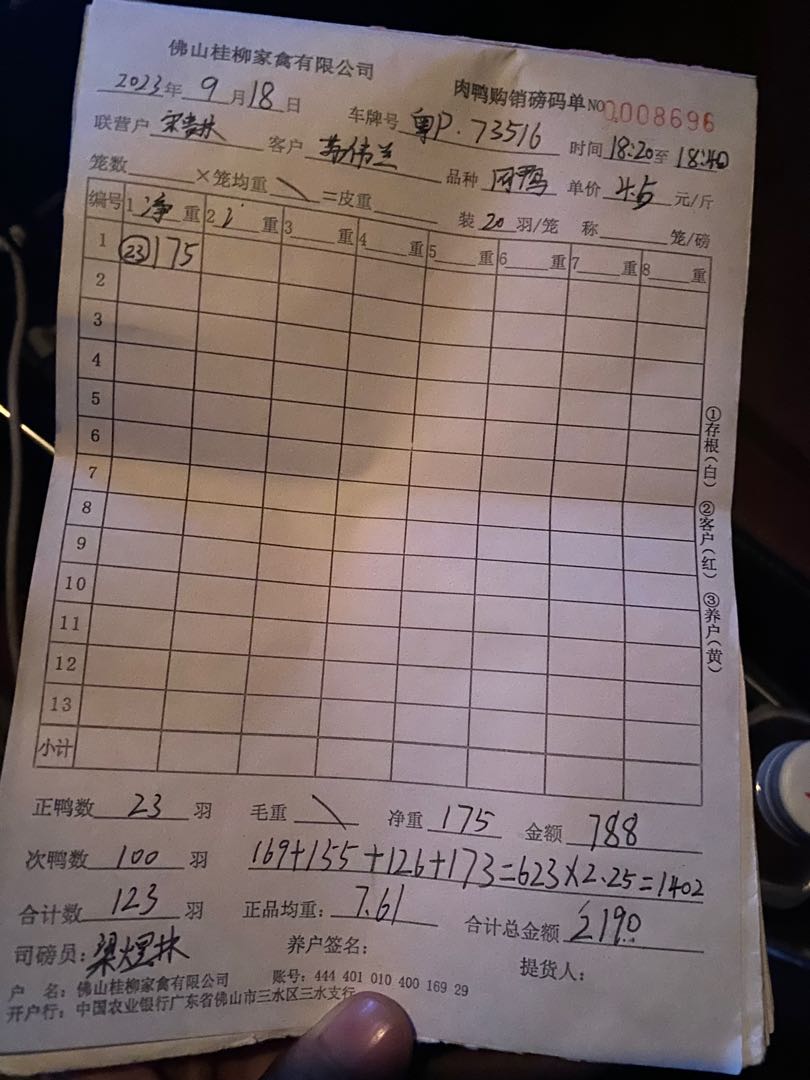 佛山桂柳家禽有限公司
肉鸭购销磅码单 NO 0008696
2023年 9月18日 车牌号 粤P·73516 时间 18:20至 18:40
联营户 客户 品种 单价 4.5 元/斤
笼数 ×笼均重 \ =皮重 装 20 羽/笼 称 笼/磅
编号 1 净 重 2 重 3 重 4 重 5 重 6 重 7 重 8 重
1 ㉓175
2
3
4
5
6
7
8
9
10
11
12
13
小计
正鸭数 23 羽 毛重 \ 净重 175 金额 788
次鸭数 100 羽 169+155+126+173=623×2.25=1402
合计数 123 羽 正品均重: 7.61 合计总金额 2190
司磅员: 梁煜林 养户签名: 提货人:
户 名: 佛山桂柳家禽有限公司 账号: 444 401 010 400 169 29
开户行: 中国农业银行广东省佛山市三水区三水支行
①存根(白) ②客户(红) ③养户(黄)